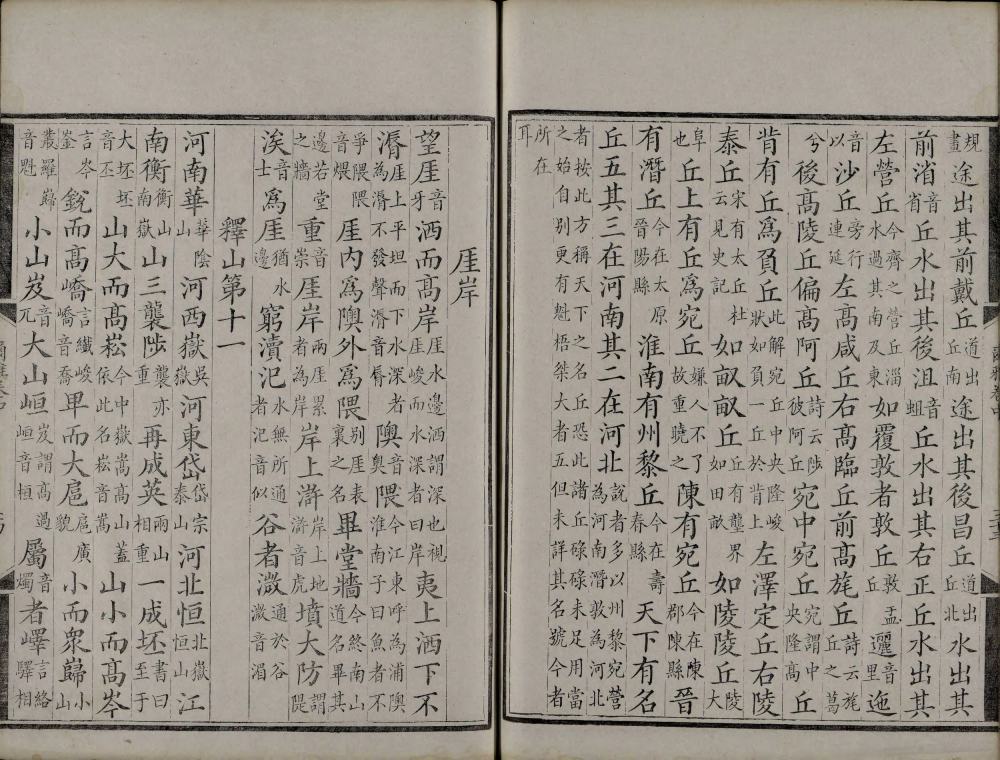 規畫途出其前戴丘道出丘南途出其後昌丘道出丘北水出其
前渻音省丘水出其後沮音蛆丘水出其右正丘水出其
左營丘今齊之營丘淄水過其南及東如覆敦者敦丘敦盂丘邐音里迤
音以沙丘旁行連延左高咸丘右高臨丘前高旄丘詩云旄丘之葛
兮後高陵丘偏高阿丘詩云陟彼阿丘宛中宛丘宛謂中央隆高丘
背有丘爲負丘此解宛丘中央隆峻狀如負一丘於背上左澤定丘右陵
泰丘宋有太丘杜云見史記如畝畝丘丘有壟界如田畝如陵陵丘陵大
阜也丘上有丘爲宛丘嫌人不了故重曉之陳有宛丘今在陳郡陳縣晉
有潛丘今在太原晉陽縣淮南有州黎丘今在壽春縣天下有名
丘五其三在河南其二在河北說者多以州黎宛營為河南潛敦為河北
者按此方稱天下之名丘恐此諸丘碌碌未足用當之始自別更有魁梧桀大者五但未詳其名號今者
所在耳
厓岸
望厓音牙洒而高岸厓水邊洒謂深也視厓峻而水深者曰岸夷上洒下不
漘厓上平坦而下水深者為漘不發聲漘音脣隩音奧隈今江東呼為浦隩淮南子曰魚者不
爭隈隈音煨厓内爲隩外爲隈別厓表裏之名畢堂牆今終南山道名畢其
邊若堂之牆重音崇厓岸兩厓累者為岸岸上滸岸上地滸音虎墳大防謂隄
涘音士爲厓猶水邊窮瀆汜水無所通者汜音似谷者溦通於谷溦音湄
釋山第十一
河南華華陰山河西嶽吳嶽河東岱岱宗泰山河北恒北嶽恒山江
南衡衡山南嶽山三襲陟襲亦重再成英兩山相重一成坯書曰至于
大坯坯音丕山大而高崧今中嶽嵩高山蓋依此名崧音嵩山小而高岑
言岑崟銳而高嶠言纖峻嶠音喬卑而大扈扈廣貌小而眾巋小山
叢羅巋音魁小山岌音兀大山峘岌謂高過峘音桓屬音燭者嶧言絡驛相